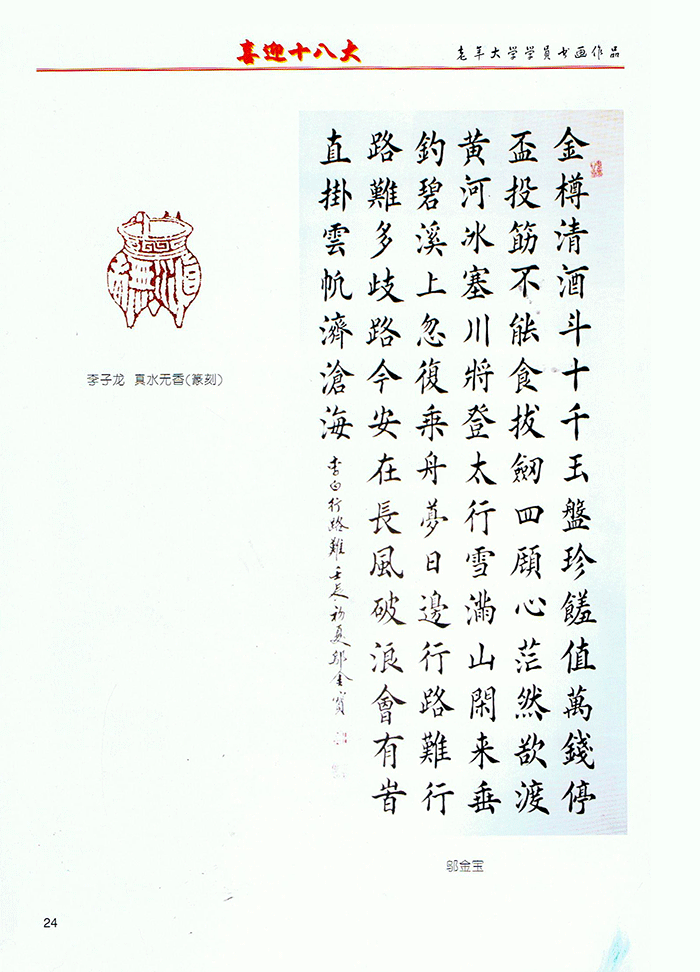 喜迎十八大
老年大学学员书画作品
金樽清酒斗十千玉盤珍饈值萬錢停
盃投筯不能食拔劒四頋心茫然欲渡
黄河冰塞川將登太行雪滿山閑来垂
釣碧溪上忽復乗舟夢日邊行路難行
路難多歧路今安在長風破浪會有旹
直掛雲帆濟滄海
李白行路難壬辰初夏邬金寶
李子龙 真水无香(篆刻)
邬金宝
24